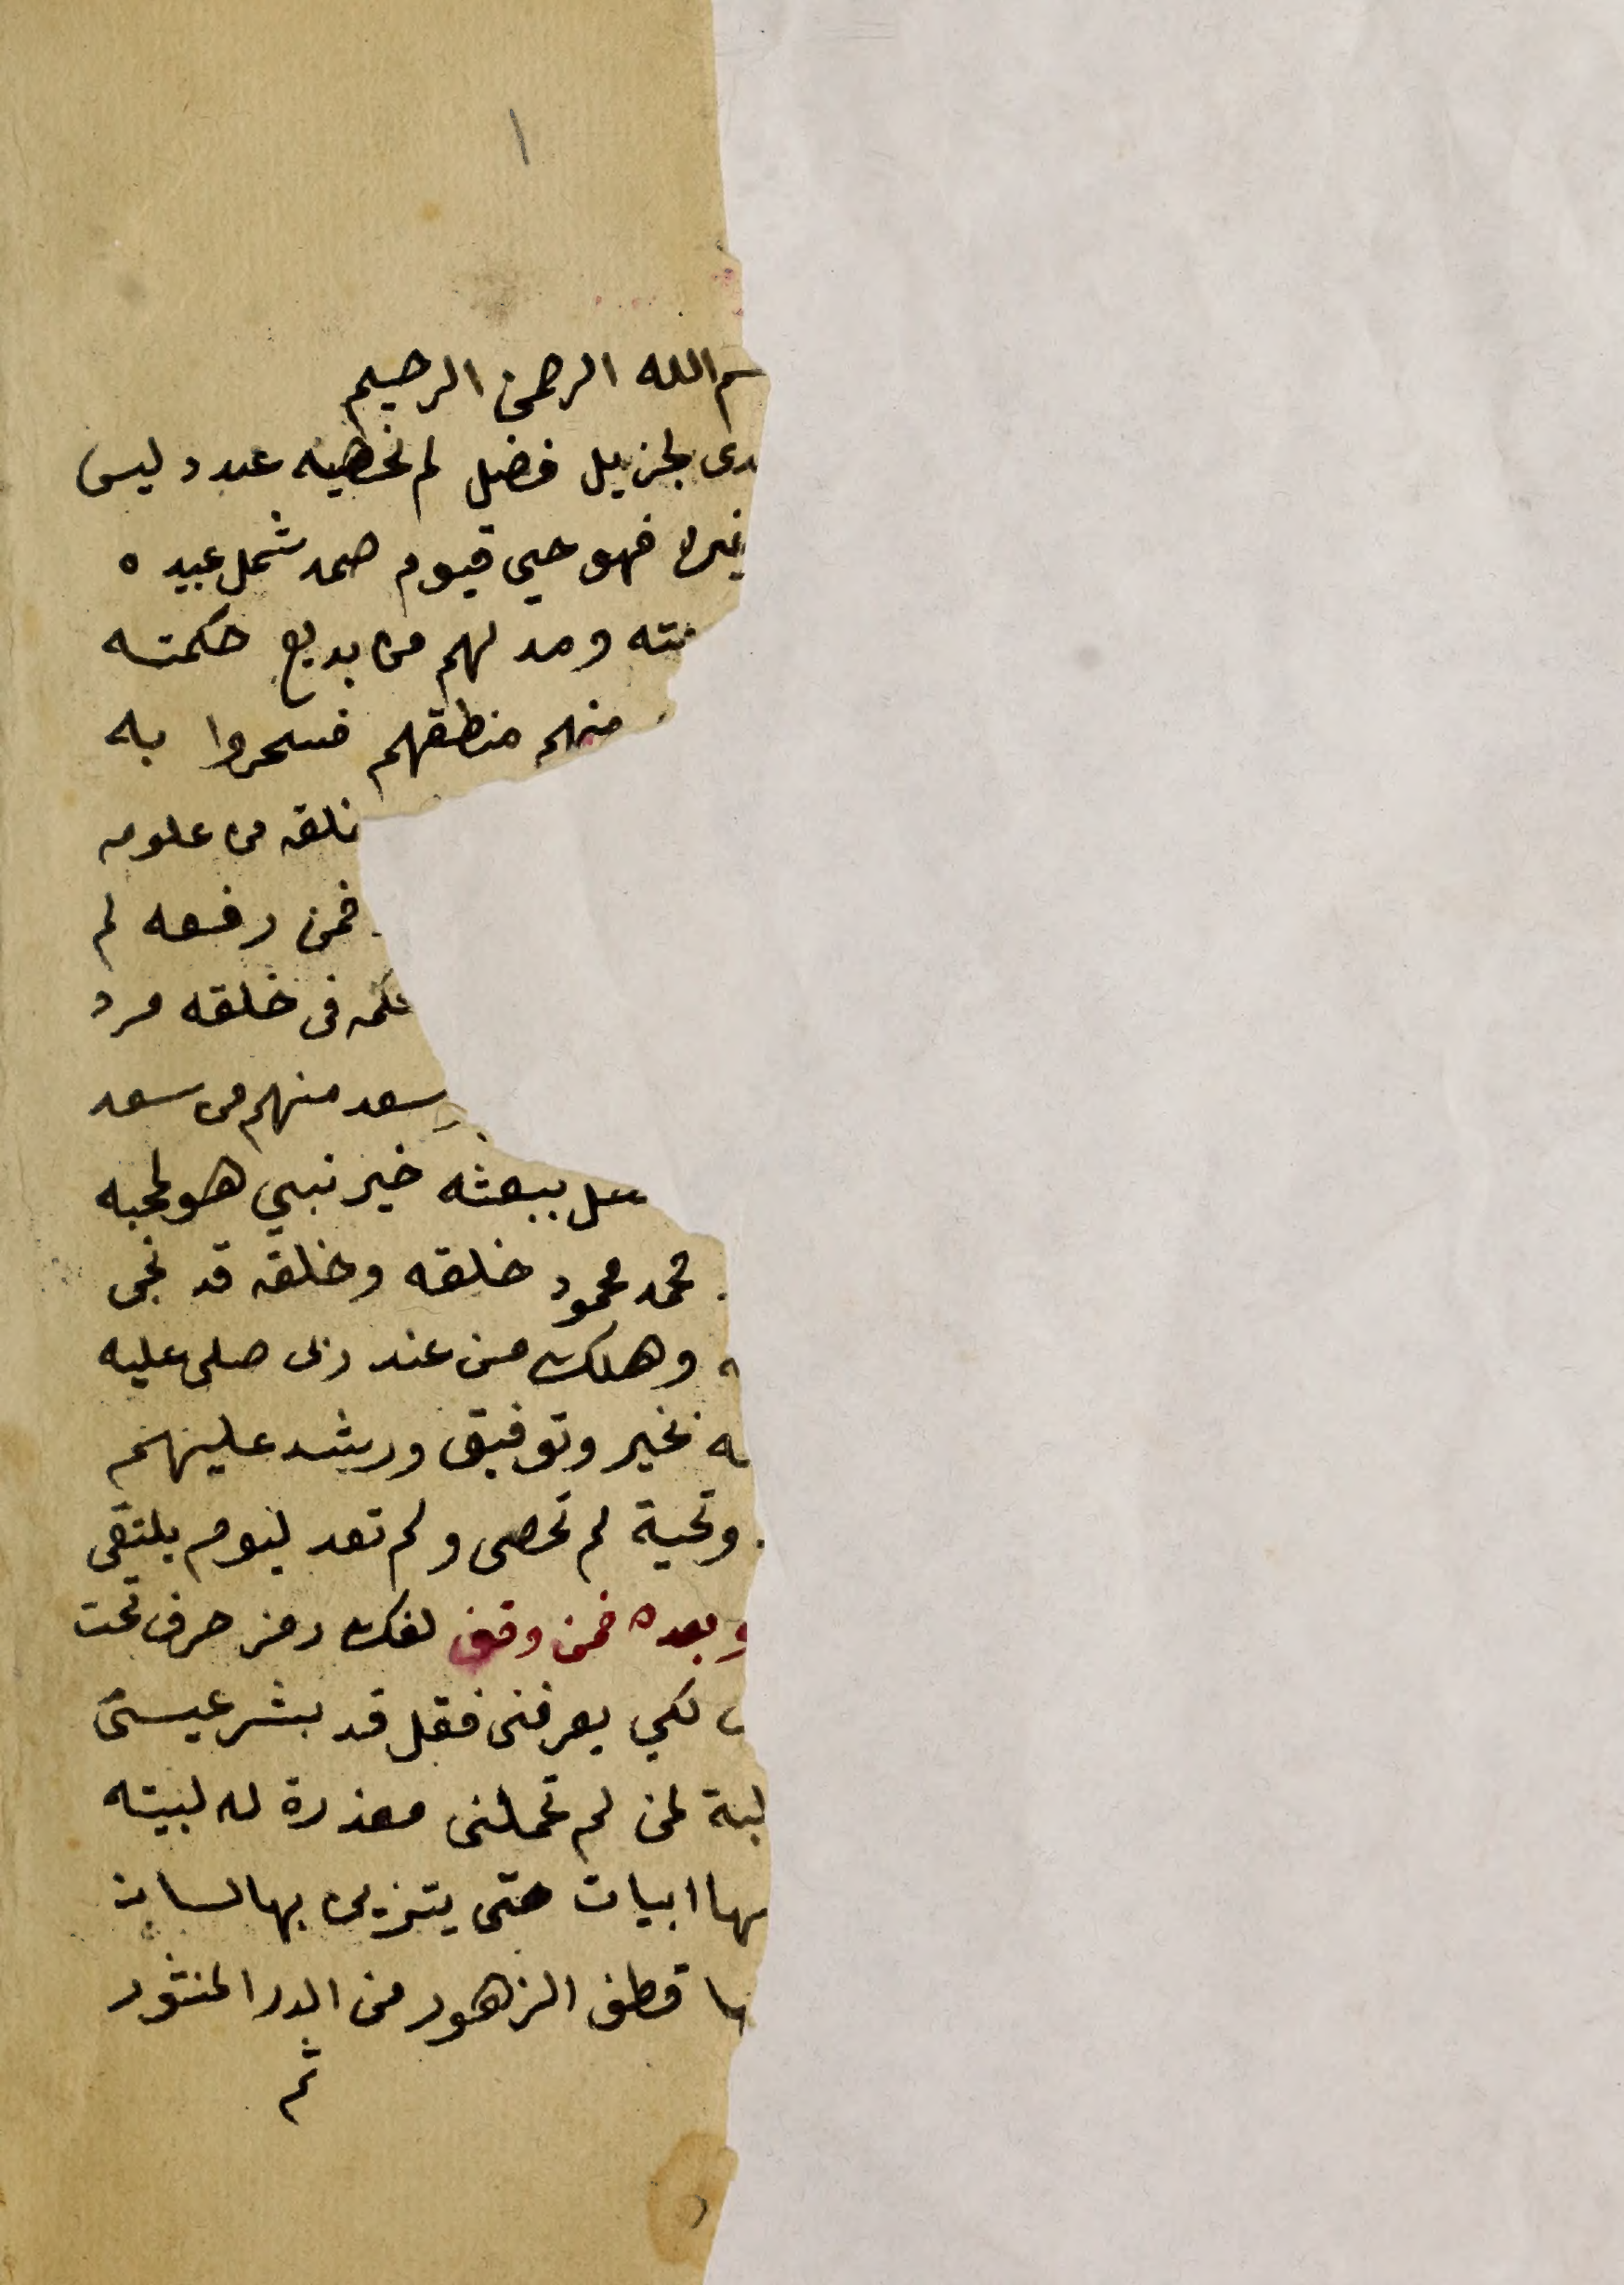 ١
سم الله الرحمن الرحيم
لجزيل فضل لم نحصيه عدد ليس
غيره فهو حيي قيوم صمد شمل عبيده
ومد لهم من بديع حكمته
منهم منطقهم فسحروا به
من علومه
فمن رفعه لم
فى خلقه مرد
سعد منهم من سعد
ببعثه خير نبيي هو لمحبه
محمد محمود خلقه وخلقه قد نجى
وهلك من عند ربى صلى عليه
خير وتوفيق ورشد عليهم
وتحية لم تحصى ولم تعد ليوم يلتقى
وبعده فمن وقف لفك رمز حرف تحت
لكي يعرفنى فقل قد بشر عيسى
لمن لم تحملنى معذرة له لبيته
ابيات حتى يتزين بها لسان
قطف الزهور من الدر المنثور
ثم